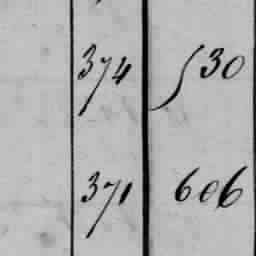 374 530
371 606